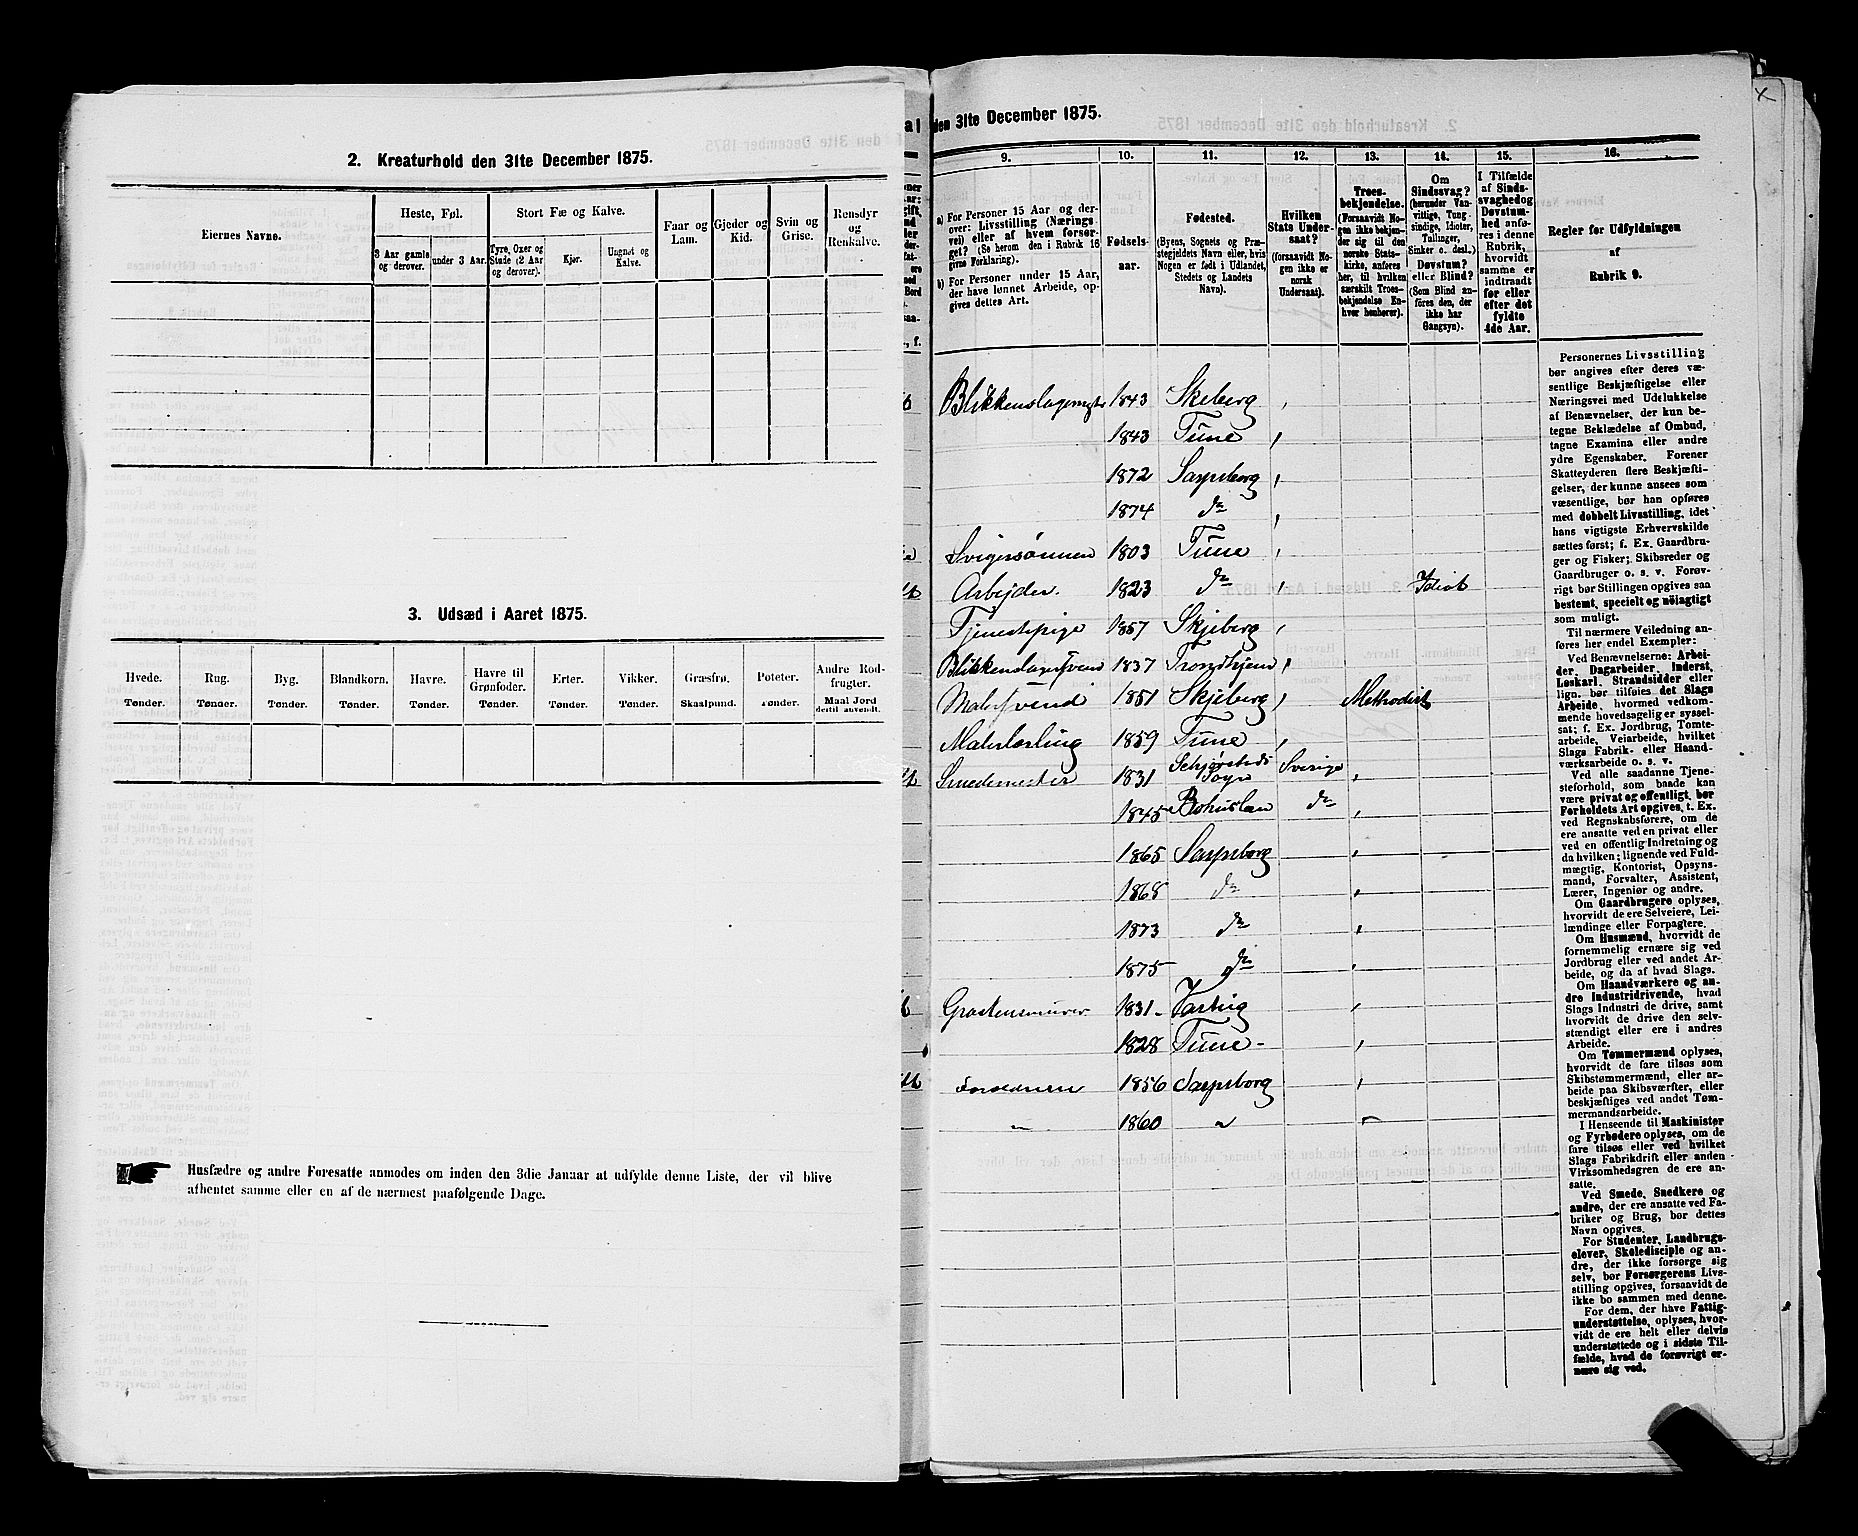 2. Kreaturhold den 31te December 1875.
Eiernes Navne.
Heste, Føl.
Stort Fæ og Kalve.
Faar og Lam.
Gjeder og Kid.
Svin og Grise.
Rensdyr og Renkalve.
3 Aar gamle og derover.
under 3 Aar.
Tyre, Oxer og Stude (2 Aar og derover).
Kjør.
Ungnøt og Kalve.
3. Udsæd i Aaret 1875.
Hvede. Rug. Byg. Blandkorn. Havre. Havre til Grønfoder. Erter. Vikker. Græsfrø. Poteter. Andre Rodfrugter.
Tønder. Tønder. Tønder. Tønder. Tønder. Tønder. Tønder. Tønder. Skaalpund. Tønder. Maal Jord dertil anvendt.
Husfædre og andre Foresatte anmodes om inden den 3die Januar at udfylde denne Liste, der vil blive
afhentet samme eller en af de nærmest paafølgende Dage.
den 31te December 1875.
9. 10. 11. 12. 13. 14. 15. 16.
a) For Personer 15 Aar og derover: Livsstilling (Næringsvei) eller af hvem forsørget? (Se herom den i Rubrik 16 givne Forklaring).
b) For Personer under 15 Aar, der have lønnet Arbeide, opgives dettes Art.
Fødselsaar.
Fødested.
(Byens, Sognets og Præstegjeldets Navn eller, hvis Nogen er født i Udlandet, Stedets og Landets Navn).
Hvilken Stats Undersaat?
(forsaavidt Nogen ikke er norsk Undersaat).
Troesbekjendelse.
(Forsaavidt Nogen ikke bekjender sig til den norske Statskirke, anføres her, til hvilken særskilt Troesbekjendelse Enhver henhører).
Om Sindssvag? (herunder Vanvittige, Tungsindige, Idioter, Tullinger, Sinker o. desl.) Døvstum? eller Blind? (Som Blind anføres den, der ikke har Gangsyn).
I Tilfælde af Sindssvaghed og Døvstumhed anføres i denne Rubrik, hvorvidt samme er indtraadt før eller efter det fyldte 4de Aar.
Regler for Udfyldningen af Rubrik 9.
Blikkenslagermstr 1843 Skeberg
1843 Tune
1872 Sarpsborg
1874 do
Svigersønnen 1803 Tune
Arbejder. 1823 do Idiot
Tjenestepige 1857 Skjeberg
Blikkenslagersvend 1837 Trondhjem
Malersvend 1851 Skjeberg Methodist
Malerlærling 1859 Tune
Smedemester 1831 Sogn Sverige
1845 Bohuslan do
1865 Sarpsborg
1868 do
1873 do
1875 do
Graastensmurer 1831 Varteig
1828 Tune
Forældrene 1856 Sarpsborg
" 1860 "
Personernes Livsstilling
bør angives efter deres væsentlige
Beskjæftigelse eller
Næringsvei med Udelukkelse
af Benævnelser, der kun betegne
Beklædelse af Ombud,
tagne Examina eller andre
ydre Egenskaber. Forener
Skatteyderen flere Beskjæftigelser,
der kunne ansees som
væsentlige, bør han opføres
med dobbelt Livsstilling, idet
hans vigtigste Erhvervskilde
sættes først; f. Ex. Gaardbruger
og Fisker; Skibsreder og
Gaardbruger o. s. v. Forøvrigt
bør Stillingen opgives saa
bestemt, specielt og nøiagtigt
som muligt.
Til nærmere Veiledning anføres
her endel Exempler:
Ved Benævnelserne: Arbeider,
Dagarbeider, Inderst,
Løskarl, Strandsidder eller
lign. bør tilføies det Slags
Arbeide, hvormed vedkommende
hovedsagelig er sysselsat;
f. Ex. Jordbrug, Tomtearbeide,
Veiarbeide, hvilket
Slags Fabrik- eller Haandværksarbeide
o. s. v.
Ved alle saadanne Tjenesteforhold,
som baade kan
være privat og offentligt, bør
Forholdets Art opgives, t. Ex.
ved Regnskabsførere, om de
ere ansatte ved en privat eller
ved en offentlig Indretning og
da hvilken; lignende ved Fuldmægtig,
Kontorist, Opsynsmand,
Forvalter, Assistent,
Lærer, Ingeniør og andre.
Om Gaardbrugere oplyses,
hvorvidt de ere Selveiere, Leilændinge
eller Forpagtere.
Om Husmænd, hvorvidt de
fornemmelig ernære sig ved
Jordbrug eller ved andet Arbeide,
og da af hvad Slags.
Om Haandværkere og andre
Industridrivende, hvad
Slags Industri de drive, samt
hvorvidt de drive den selvstændigt
eller ere i andres
Arbeide.
Om Tømmermænd oplyses,
hvorvidt de fare tilsøs som
Skibstømmermænd, eller arbeide
paa Skibsværfter, eller
beskjæftiges ved andet Tømmermandsarbeide.
I Henseende til Maskinister
og Fyrbødere oplyses, om de
fare tilsøs eller ved hvilket
Slags Fabrikdrift eller anden
Virksomhedsgren de ere ansatte.
Ved Smede, Snedkere og
andre, der ere ansatte ved Fabriker
og Brug, bør dettes
Navn opgives.
For Studenter, Landbrugselever,
Skoledisciple og andre,
der ikke forsørge sig
selv, bør Forsørgerens Livsstilling
opgives, forsaavidt de
ikke bo sammen med denne.
For dem, der have Fattigunderstøttelse,
oplyses, hvorvidt
de ere helt eller delvis
understøttede og i sidste Tilfælde,
hvad de forøvrigt ernære
sig ved.